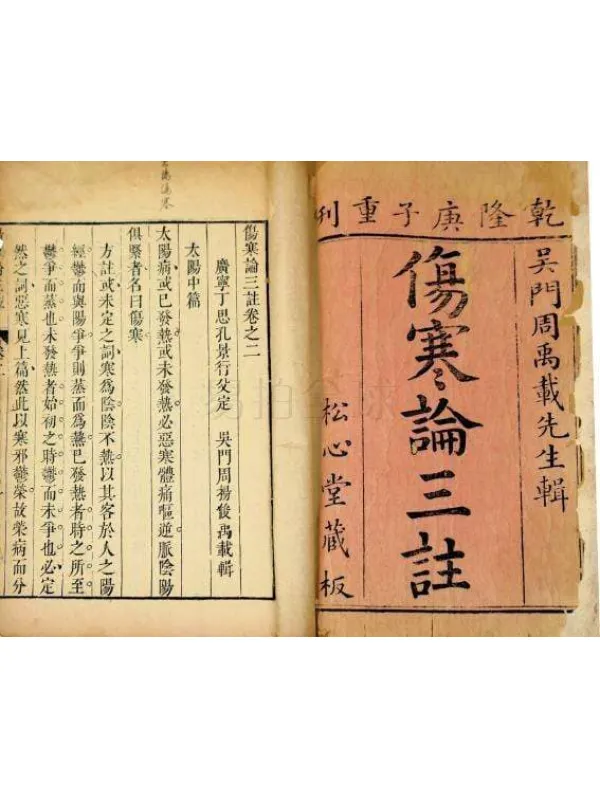 乾隆庚子重刊
吳門周禹載先生輯
傷寒論三註
松心堂藏板
傷寒論三註卷之二
廣寧丁思孔景行父定 吳門周揚俊禹載輯
太陽中篇
太陽病或已發熱或未發熱必惡寒體痛嘔逆脈陰陽
俱緊者名曰傷寒
方註或未定之詞寒爲陰陰不熱以其客於人之陽
經鬱而與陽爭爭則蒸而爲熱已發熱者時之所至
鬱爭而蒸也未發熱者始初之時鬱而未爭也必定
然之詞惡寒見上篇然此以寒邪鬱榮故榮病而分